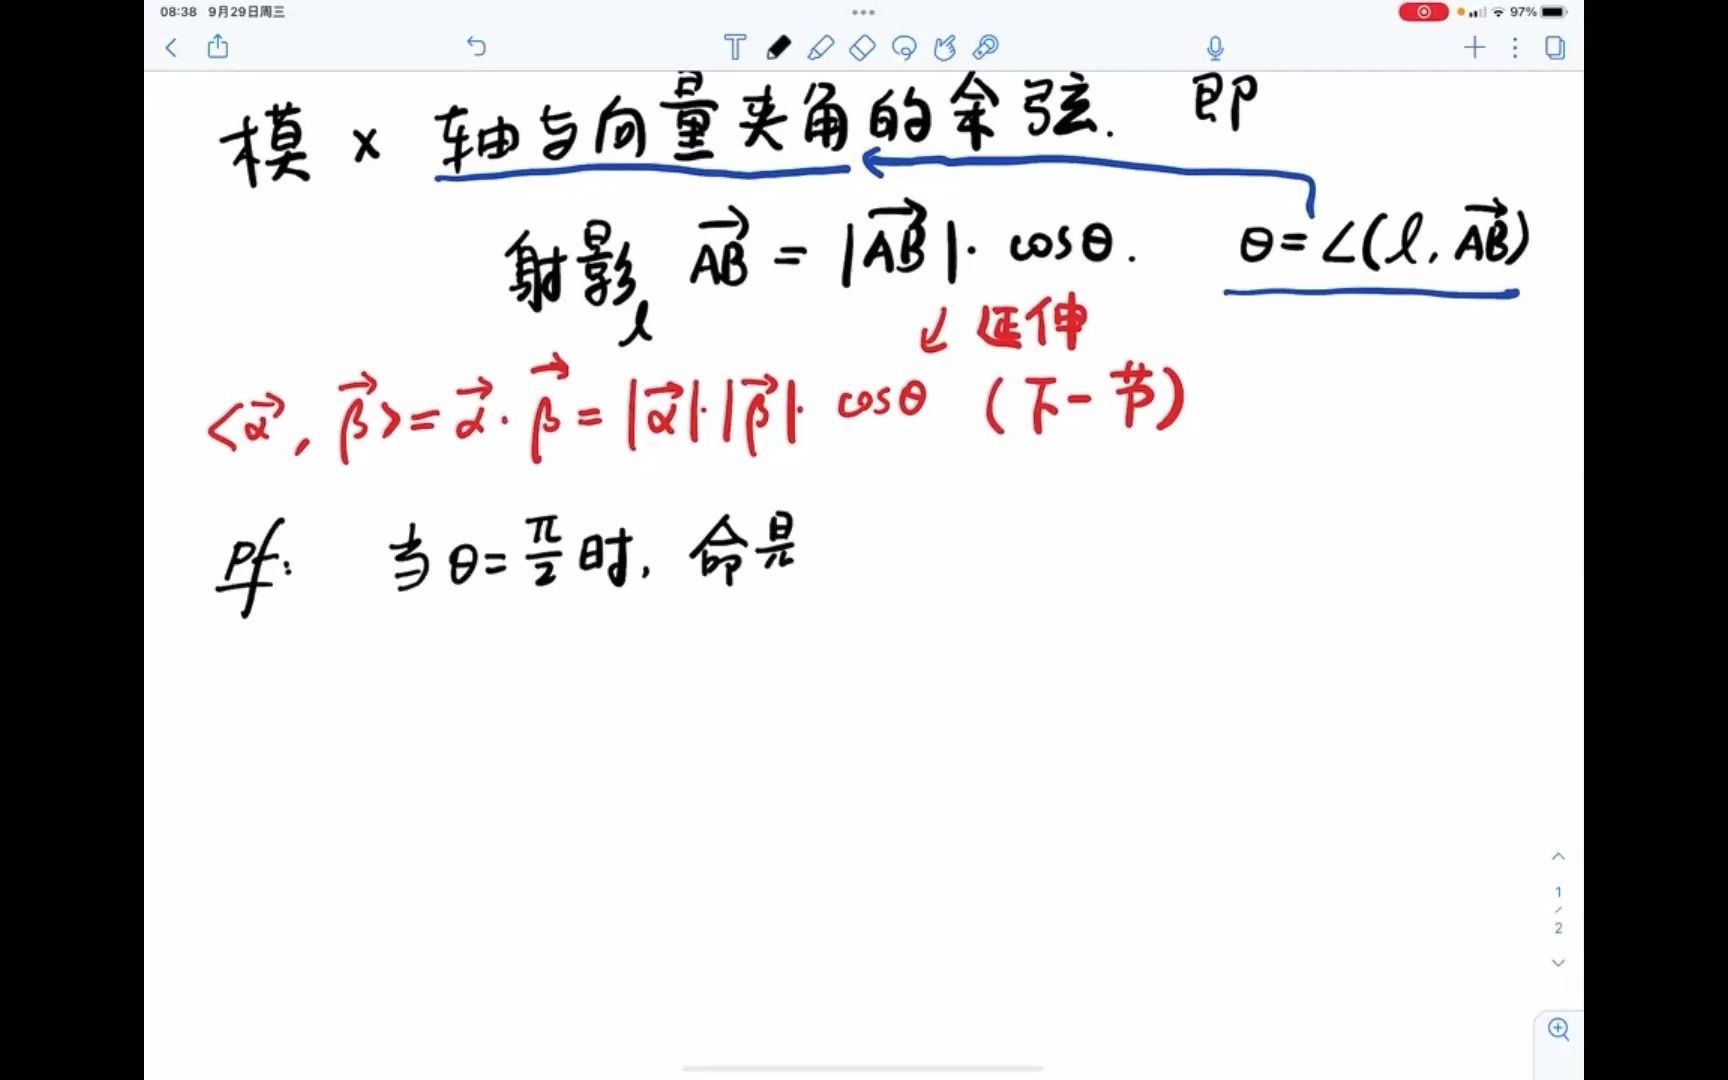 08:38 9月29日周三
97%
模 × 轴与向量夹角的余弦. 即
射影l AB→ = |AB→|· cosθ. θ=∠(l, AB→)
↙ 延伸
<α→, β→> = α→·β→ = |α→|·|β→|· cosθ (下一节)
pf: 当θ=π/2时,
1
/
2